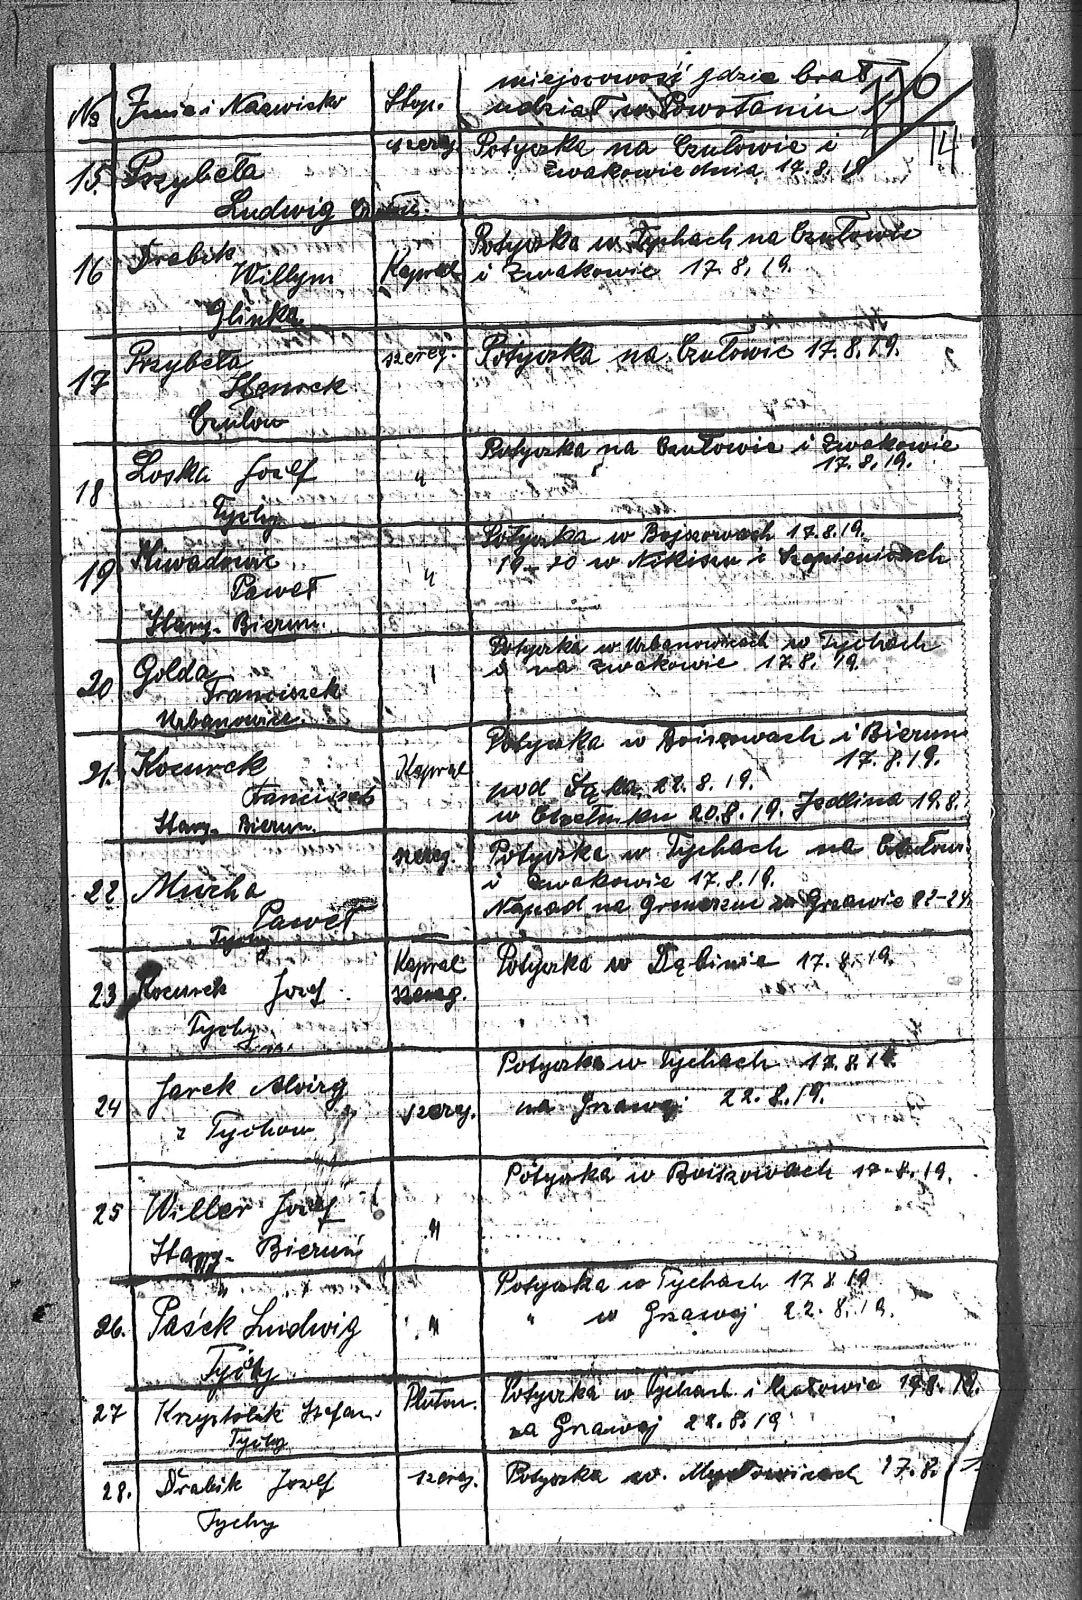 No Imie i Nazwisko Stop. miejscowość gdzie brał
udział w Powstaniu
10
14
15 Przybeła szereg. Potyczka na Czułowie i
Zwakowie dnia 17.8.19
Ludwig
16 Drabik Kapral Potyczka w Tychach na Czułowie
Willym i Zwakowie 17.8.19.
Glinka
17 Przybeła szereg. Potyczka na Czułowie 17.8.19.
Henrek
Czułow
18 Loska Jozef " Potyczka na Czułowie i Zwakowie
17.8.19.
Tychy
19 " Potyczka w Bojszowach 17.8.19.
Paweł 19-20 w Nikiszu i Szopienicach
Stary-Bierun.
20 Golda " Potyczka w Urbanowicach w Tychach
Franciszek i na Zwakowie 17.8.19.
Urbanowice.
21. Kocurek Kapral Potyczka w Boiszowach i Bierun
17.8.19.
Franciszek pod Łąka 22.8.19.
Stary-Bierun. w 20.8.19. Jedlina 19.8.
22 Mucha szereg. Potyczka w Tychach na Czułow
i Zwakowie 17.8.19.
Paweł Napad na Grenzschutz Grzawie 22-24.
Tychy
23 Kocurek Jozef Kapral Potyczka w Dąbinie 17.8.19.
szereg.
Tychy
24 Jarek Alojzy szereg. Potyczka w Tychach 17.8.19.
z Tychow na Grzawej 22.8.19.
25 Willer Jozef " Potyczka w Boiszowach 17.8.19.
Stary-Bieruń
26. Pasek Ludwig " Potyczka w Tychach 17.8.19
Tychy " w Grzawej 22.8.19.
27 Krzystolik Stefan. Pluton. Potyczka w Tychach i Czułowie 19.8.19.
Tychy na Grzawej 22.8.19
28. Drabik Jozef szereg. Potyczka w. Mysłowicach 17.8.
Tychy